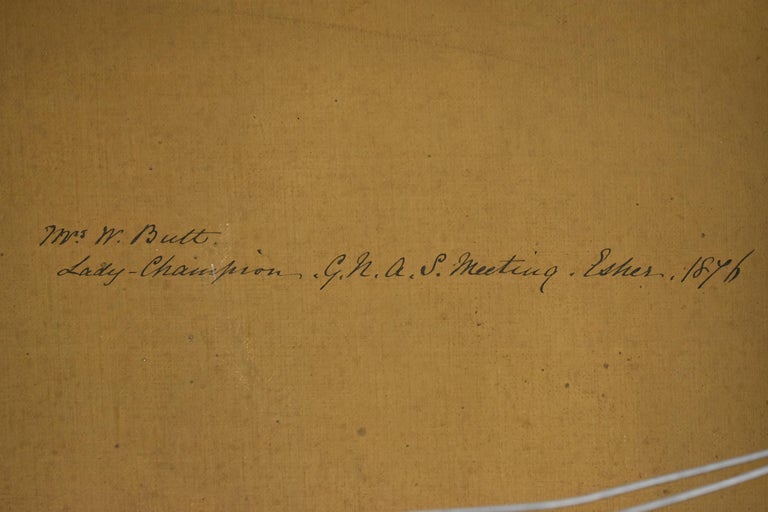 Mrs W. Butt.
Lady-Champion. G. N. A. S. Meeting. Esher. 1876